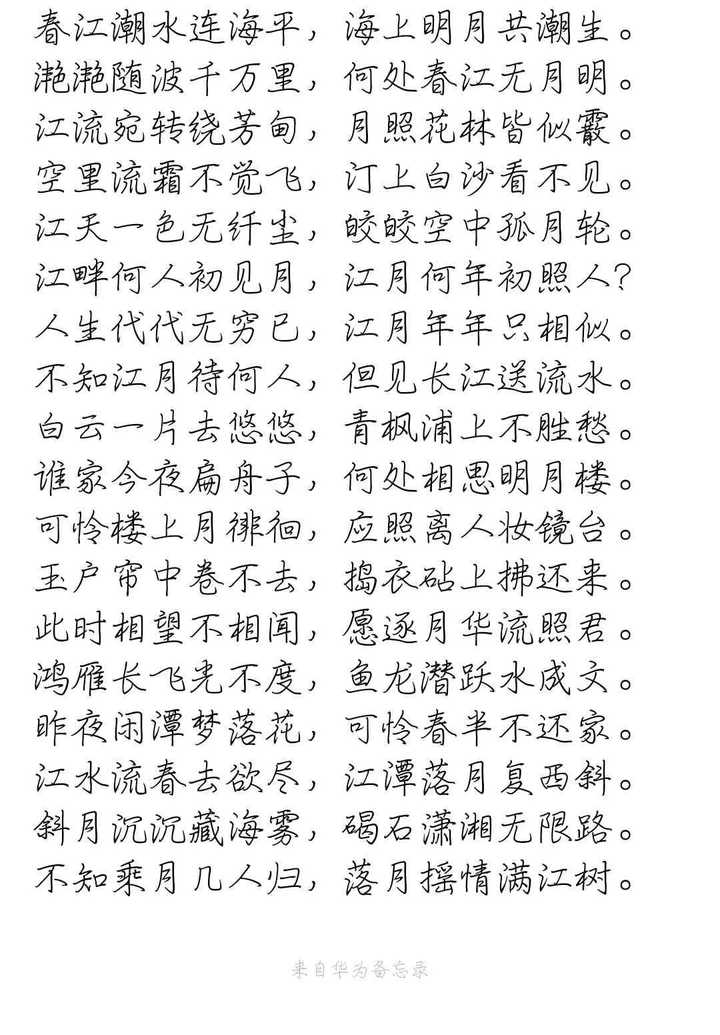 春江潮水连海平，海上明月共潮生。
滟滟随波千万里，何处春江无月明。
江流宛转绕芳甸，月照花林皆似霰。
空里流霜不觉飞，汀上白沙看不见。
江天一色无纤尘，皎皎空中孤月轮。
江畔何人初见月，江月何年初照人？
人生代代无穷已，江月年年只相似。
不知江月待何人，但见长江送流水。
白云一片去悠悠，青枫浦上不胜愁。
谁家今夜扁舟子，何处相思明月楼。
可怜楼上月徘徊，应照离人妆镜台。
玉户帘中卷不去，捣衣砧上拂还来。
此时相望不相闻，愿逐月华流照君。
鸿雁长飞光不度，鱼龙潜跃水成文。
昨夜闲潭梦落花，可怜春半不还家。
江水流春去欲尽，江潭落月复西斜。
斜月沉沉藏海雾，碣石潇湘无限路。
不知乘月几人归，落月摇情满江树。
来自华为备忘录